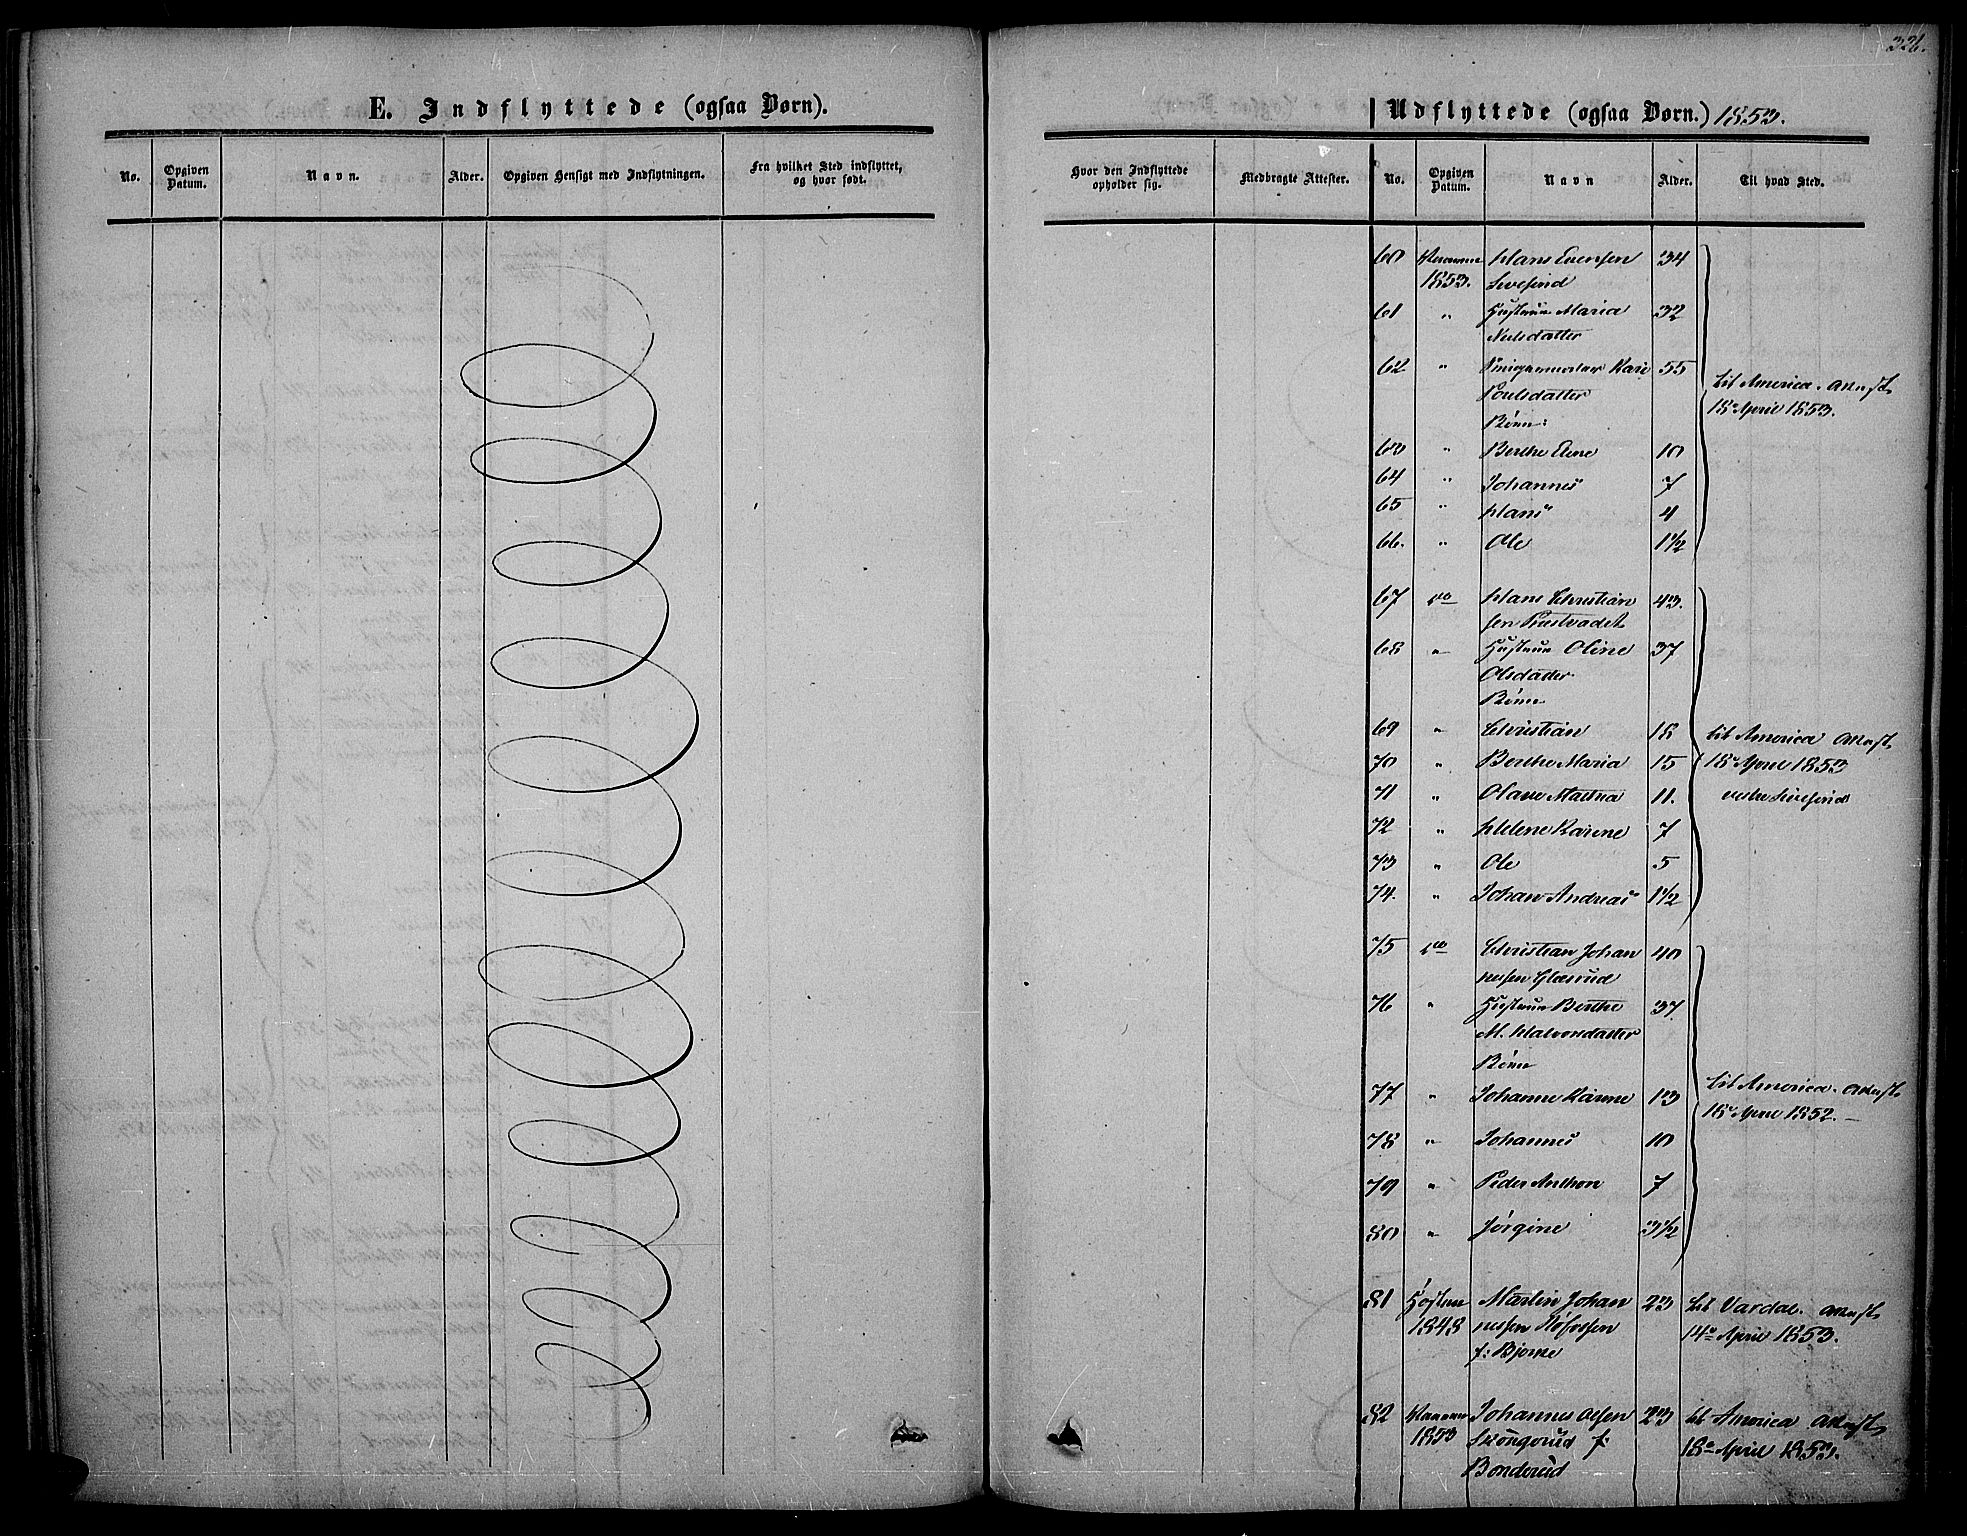 326.
E. Indflyttede (ogsaa Børn).
No.
Opgiven Datum.
Navn.
Alder.
Opgiven Hensigt med Indflytningen.
Fra hvilket Sted indflyttet, og hvor født.
Udflyttede (ogsaa Børn.) 1853.
Hvor den Indflyttede opholder sig.
Medbragte Attester.
No.
Opgiven Datum.
Navn
Alder.
Til hvad Sted.
60 1853. Hans Evensen 34
61 " Hustrue Maria 32
Nielsdatter
62 " Kari 55
Poulsdatter
Børn:
til America. Attest
18de April 1853.
63 " Berthe Eline 10
64 " Johannes 7
65 " Hans 4
66. " Ole 1 1/2
67 do Hans Christian 43.
sen
68 " Hustrue Oline 37
Olsdatter
Børn
69 " Christian 18
70 " Berthe Maria 15
71 " Olave Mathea 11.
72 " Helene Karine 7
73 " Ole 5
74. " Johan Andreas 1 1/2
til America Attest
18de April 1853
75 do Christian Johan 40
nesen Glæsrud
76 " Hustrue Berthe 37
M. Halvorsdatter
Børn
77 " Johanne Karine 13
78 " Johannes 10
79 " Peder Anthon 7
80 " Jørgine 3 1/2
til America. Attest
18de April 1852. —
81 Høsten Martin Johan 23 til Vardal. Attest
1848 nessen 14de April 1853.
f: Bjørne
82 Johannes Olsen 23 til America Attest
1853 f: 18de April 1853.
Bonderud